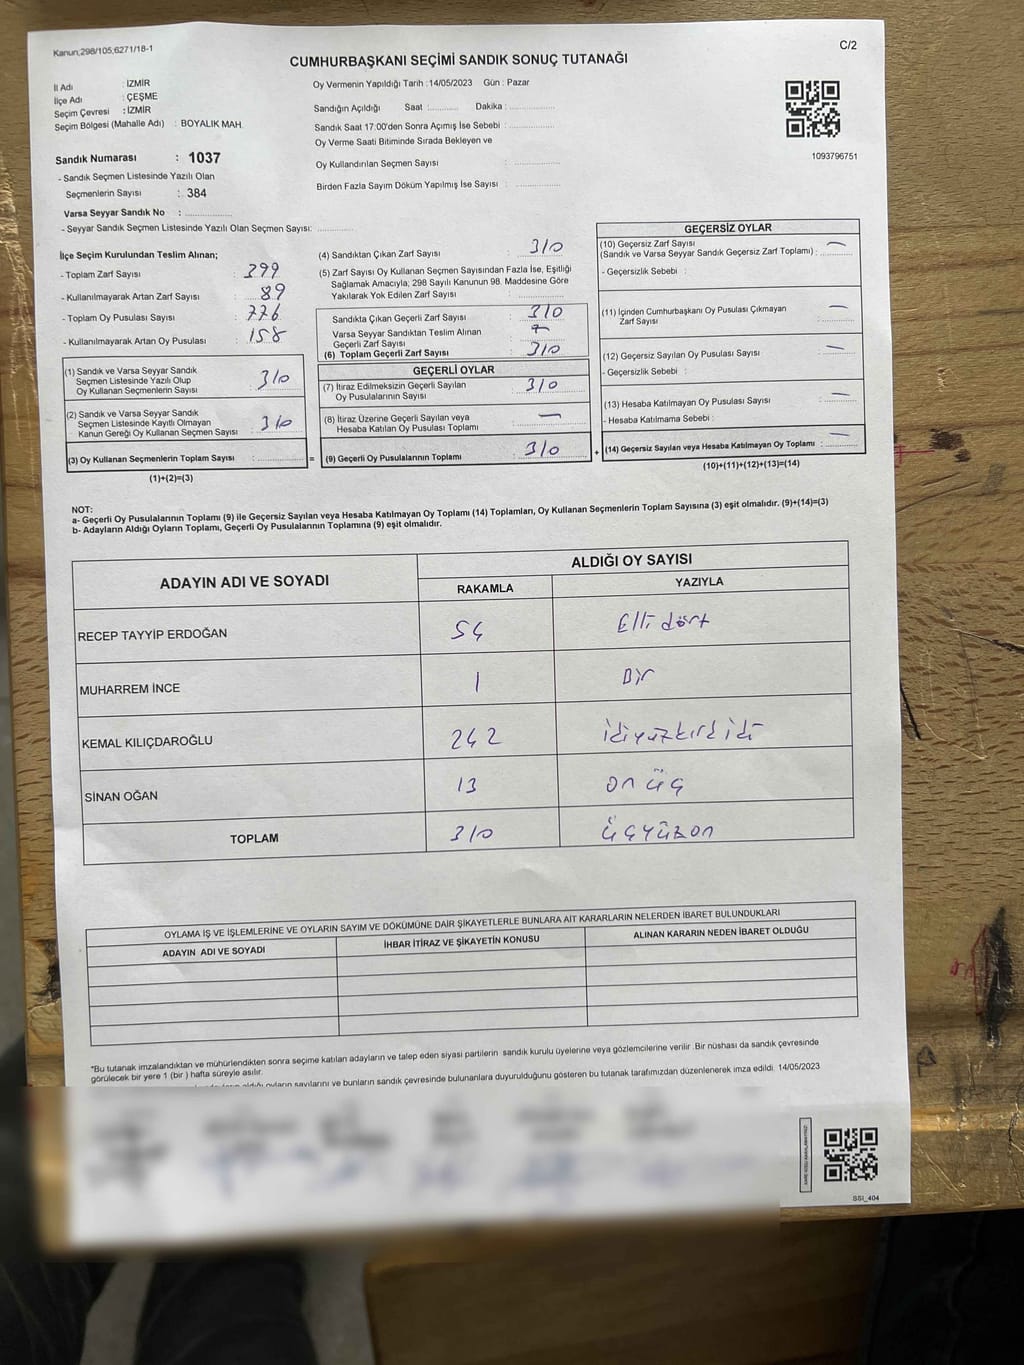 Kanun;298/105;6271/18-1
C/2
CUMHURBAŞKANI SEÇİMİ SANDIK SONUÇ TUTANAĞI
İl Adı : İZMİR
İlçe Adı : ÇEŞME
Seçim Çevresi : İZMİR
Seçim Bölgesi (Mahalle Adı) : BOYALIK MAH.
Oy Vermenin Yapıldığı Tarih :14/05/2023 Gün : Pazar
Sandığın Açıldığı Saat :.......... Dakika :..........
Sandık Saat 17:00'den Sonra Açımış İse Sebebi :..........
Oy Verme Saati Bitiminde Sırada Bekleyen ve
Oy Kullandırılan Seçmen Sayısı :..........
Birden Fazla Sayım Döküm Yapılmış İse Sayısı :..........
1093796751
Sandık Numarası : 1037
- Sandık Seçmen Listesinde Yazılı Olan
Seçmenlerin Sayısı : 384
Varsa Seyyar Sandık No :..........
- Seyyar Sandık Seçmen Listesinde Yazılı Olan Seçmen Sayısı: ..........
İlçe Seçim Kurulundan Teslim Alınan;
- Toplam Zarf Sayısı : 399
- Kullanılmayarak Artan Zarf Sayısı : 89
- Toplam Oy Pusulası Sayısı : 776
- Kullanılmayarak Artan Oy Pusulası : 158
(1) Sandık ve Varsa Seyyar Sandık
Seçmen Listesinde Yazılı Olup
Oy Kullanan Seçmenlerin Sayısı : 310
(2) Sandık ve Varsa Seyyar Sandık
Seçmen Listesinde Kayıtlı Olmayan
Kanun Gereği Oy Kullanan Seçmen Sayısı : 310
(3) Oy Kullanan Seçmenlerin Toplam Sayısı :..........
(1)+(2)=(3)
(4) Sandıktan Çıkan Zarf Sayısı : 310
(5) Zarf Sayısı Oy Kullanan Seçmen Sayısından Fazla İse, Eşitliği
Sağlamak Amacıyla; 298 Sayılı Kanunun 98. Maddesine Göre
Yakılarak Yok Edilen Zarf Sayısı :..........
Sandıkta Çıkan Geçerli Zarf Sayısı : 310
Varsa Seyyar Sandıktan Teslim Alınan
Geçerli Zarf Sayısı :
(6) Toplam Geçerli Zarf Sayısı : 310
GEÇERLİ OYLAR
(7) İtiraz Edilmeksizin Geçerli Sayılan
Oy Pusulalarının Sayısı : 310
(8) İtiraz Üzerine Geçerli Sayılan veya
Hesaba Katılan Oy Pusulası Toplamı : —
= (9) Geçerli Oy Pusulalarının Toplamı : 310
GEÇERSİZ OYLAR
(10) Geçersiz Zarf Sayısı
(Sandık ve Varsa Seyyar Sandık Geçersiz Zarf Toplamı) : —
- Geçersizlik Sebebi :
(11) İçinden Cumhurbaşkanı Oy Pusulası Çıkmayan
Zarf Sayısı : —
(12) Geçersiz Sayılan Oy Pusulası Sayısı : —
- Geçersizlik Sebebi :
(13) Hesaba Katılmayan Oy Pusulası Sayısı : —
- Hesaba Katılmama Sebebi :
+ (14) Geçersiz Sayılan veya Hesaba Katılmayan Oy Toplamı : —
(10)+(11)+(12)+(13)=(14)
NOT:
a- Geçerli Oy Pusulalarının Toplamı (9) ile Geçersiz Sayılan veya Hesaba Katılmayan Oy Toplamı (14) Toplamları, Oy Kullanan Seçmenlerin Toplam Sayısına (3) eşit olmalıdır. (9)+(14)=(3)
b- Adayların Aldığı Oyların Toplamı, Geçerli Oy Pusulalarının Toplamına (9) eşit olmalıdır.
ADAYIN ADI VE SOYADI
ALDIĞI OY SAYISI
RAKAMLA YAZIYLA
RECEP TAYYİP ERDOĞAN 54 Elli dört
MUHARREM İNCE 1 Bir
KEMAL KILIÇDAROĞLU 242 ikiyüzkırk iki
SİNAN OĞAN 13 on üç
TOPLAM 310 üçyüzon
OYLAMA İŞ VE İŞLEMLERİNE VE OYLARIN SAYIM VE DÖKÜMÜNE DAİR ŞİKAYETLERLE BUNLARA AİT KARARLARIN NELERDEN İBARET BULUNDUKLARI
ADAYIN ADI VE SOYADI İHBAR İTİRAZ VE ŞİKAYETİN KONUSU ALINAN KARARIN NEDEN İBARET OLDUĞU
"Bu tutanak imzalandıktan ve mühürlendikten sonra seçime katılan adayların ve talep eden siyasi partilerin sandık kurulu üyelerine veya gözlemcilerine verilir .Bir nüshası da sandık çevresinde
görülecek bir yere 1 (bir ) hafta süreyle asılır.
aldığı oyların sayılarını ve bunların sandık çevresinde bulunanlara duyurulduğunu gösteren bu tutanak tarafımızdan düzenlenerek imza edildi. 14/05/2023
SSI_404